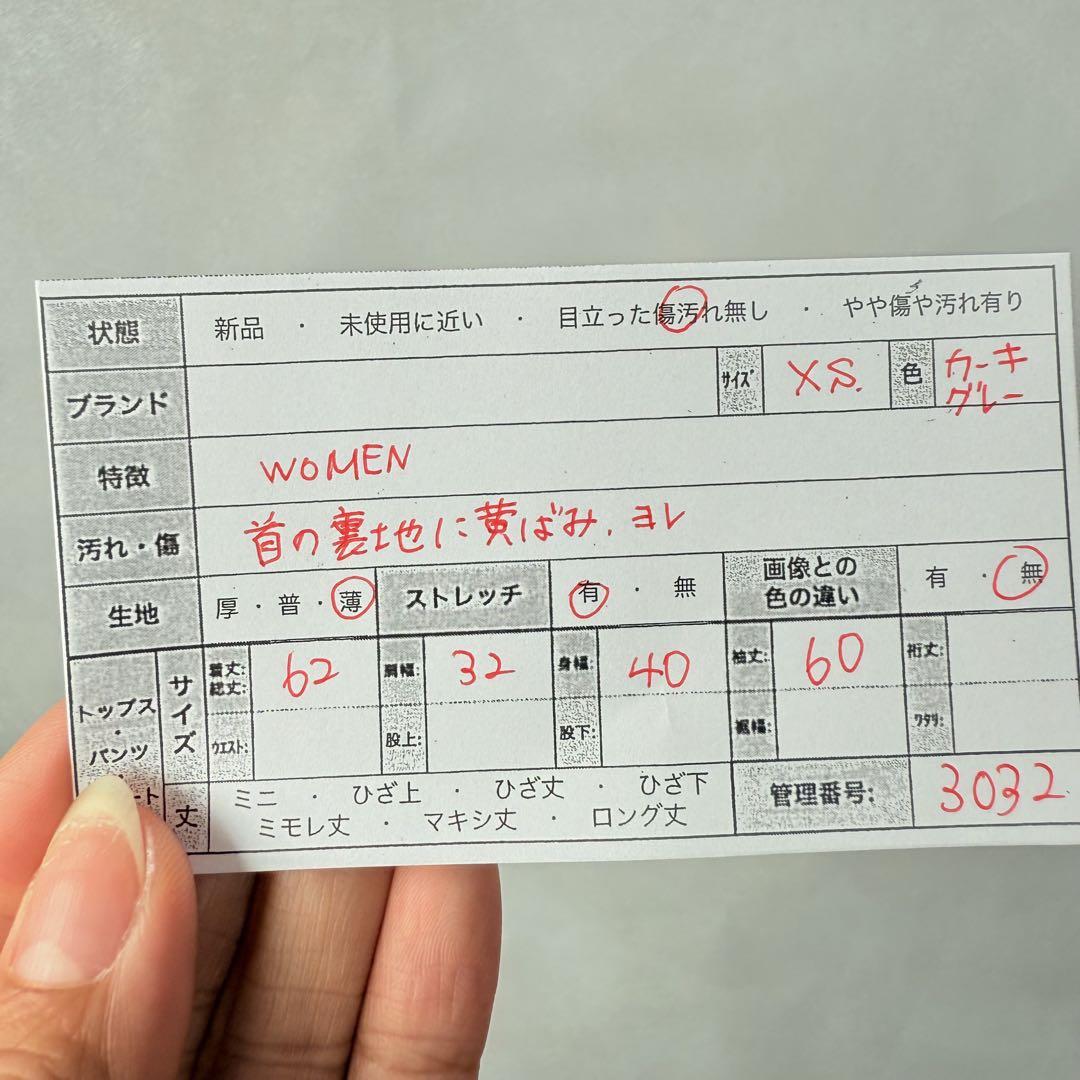 状態 新品 ・ 未使用に近い ・ 目立った傷汚れ無し ・ やや傷や汚れ有り
ブランド サイズ XS. 色 カーキ
グレー
特徴 WOMEN
汚れ・傷 首の裏地に黄ばみ、ヨレ
生地 厚・普・薄 ストレッチ 有 ・ 無 画像との
色の違い 有 ・ 無
トップス
・
パンツ
サイズ
着丈:
総丈: 62 肩幅: 32 身幅: 40 袖丈: 60 裄丈:
ウエスト: 股上: 股下: 裾幅: ワタリ:
丈 ミニ ・ ひざ上 ・ ひざ丈 ・ ひざ下
ミモレ丈 ・ マキシ丈 ・ ロング丈
管理番号: 3032